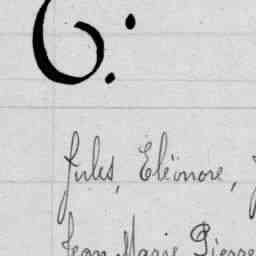 6:
Jules, Eléonore,
Jean Marie Pierre